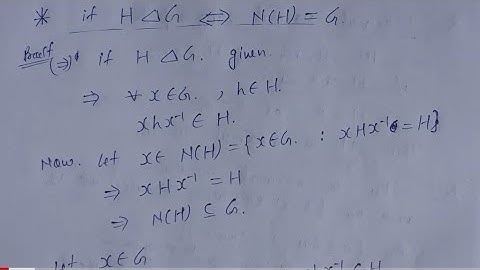 * if H △ G ⟺ N(H) = G.
Proof (⇒) if H △ G. given
⇒ ∀ x∈G. , h∈H.
xhx⁻¹ ∈ H.
Now. let x∈ N(H) = {x∈G. : xHx⁻¹ = H}
⇒ xHx⁻¹ = H
⇒ N(H) ⊆ G.
let x∈G